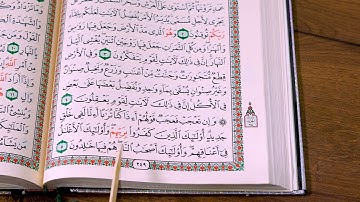 يَجْرِي لِأَجَلٍ مُّسَمًّى يُدَبِّرُ الْأَمْرَ يُفَصِّلُ الْآيَاتِ لَعَلَّكُم بِلِقَاءِ
رَبِّكُمْ تُوقِنُونَ ٢ وَهُوَ الَّذِي مَدَّ الْأَرْضَ وَجَعَلَ فِيهَا رَوَاسِيَ
وَأَنْهَارًا وَمِن كُلِّ الثَّمَرَاتِ جَعَلَ فِيهَا زَوْجَيْنِ اثْنَيْنِ يُغْشِي اللَّيْلَ
النَّهَارَ إِنَّ فِي ذَٰلِكَ لَآيَاتٍ لِّقَوْمٍ يَتَفَكَّرُونَ ٣ وَفِي الْأَرْضِ
قِطَعٌ مُّتَجَاوِرَاتٌ وَجَنَّاتٌ مِّنْ أَعْنَابٍ وَزَرْعٌ وَنَخِيلٌ صِنْوَانٌ
وَغَيْرُ صِنْوَانٍ يُسْقَىٰ بِمَاءٍ وَاحِدٍ وَنُفَضِّلُ بَعْضَهَا عَلَىٰ بَعْضٍ
فِي الْأُكُلِ إِنَّ فِي ذَٰلِكَ لَآيَاتٍ لِّقَوْمٍ يَعْقِلُونَ ٤
۞ وَإِن تَعْجَبْ فَعَجَبٌ قَوْلُهُمْ أَءِذَا كُنَّا تُرَابًا أَءِنَّا لَفِي خَلْقٍ
جَدِيدٍ أُولَٰئِكَ الَّذِينَ كَفَرُوا بِرَبِّهِمْ وَأُولَٰئِكَ الْأَغْلَالُ
فِي أَعْنَاقِهِمْ وَأُولَٰئِكَ أَصْحَابُ النَّارِ هُمْ فِيهَا خَالِدُونَ ٥
٢٤٩